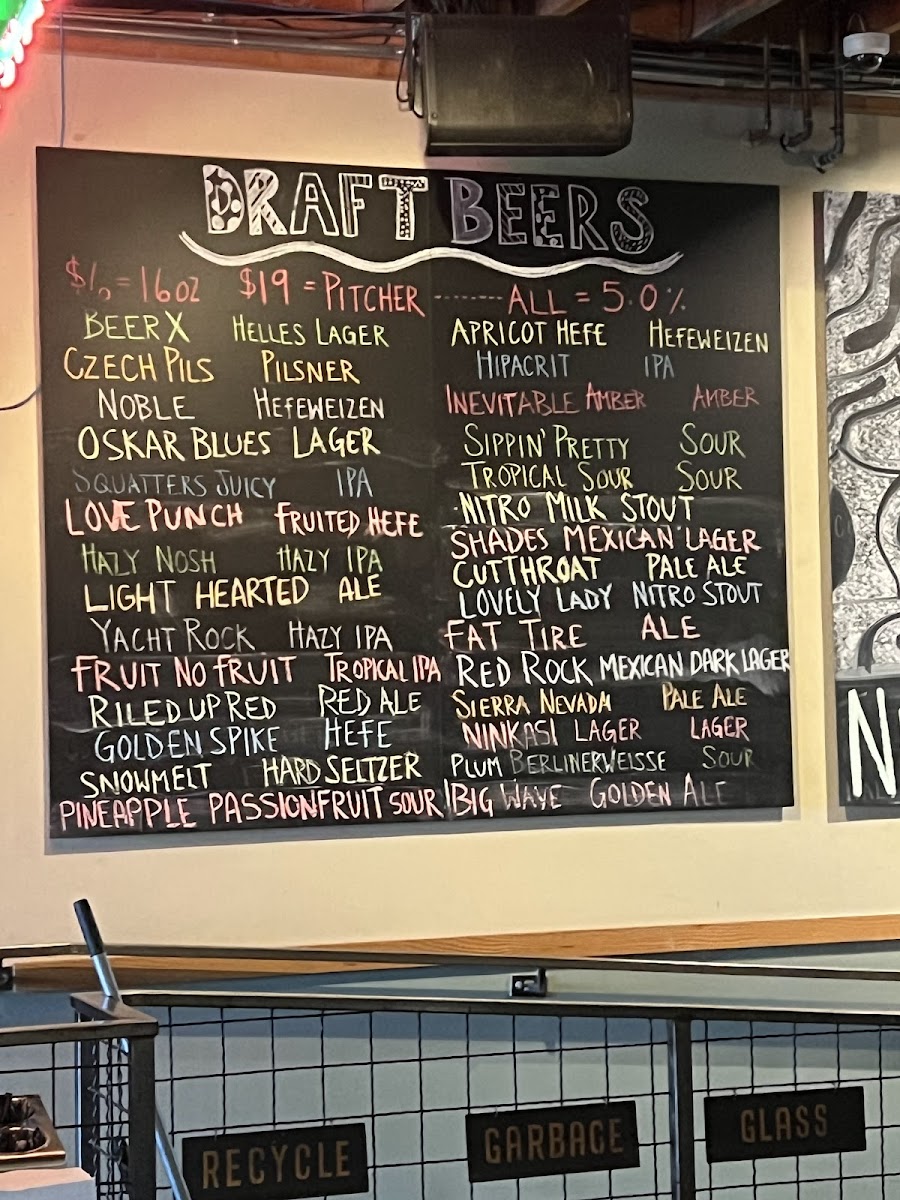 DRAFT BEERS
= 16 OZ $19 = PITCHER -------- ALL = 5.0%
BEER X HELLES LAGER
CZECH PILS PILSNER
NOBLE HEFEWEIZEN
OSKAR BLUES LAGER
SQUATTERS JUICY IPA
LOVE PUNCH FRUITED HEFE
HAZY NOSH HAZY IPA
LIGHT HEARTED ALE
YACHT ROCK HAZY IPA
FRUIT NO FRUIT TROPICAL IPA
RILED UP RED RED ALE
GOLDEN SPIKE HEFE
SNOWMELT HARD SELTZER
PINEAPPLE PASSIONFRUIT SOUR
APRICOT HEFE HEFEWEIZEN
HIPACRIT IPA
INEVITABLE AMBER AMBER
SIPPIN' PRETTY SOUR
TROPICAL SOUR SOUR
NITRO MILK STOUT
SHADES MEXICAN LAGER
CUTTHROAT PALE ALE
LOVELY LADY NITRO STOUT
FAT TIRE ALE
RED ROCK MEXICAN DARK LAGER
SIERRA NEVADA PALE ALE
NINKASI LAGER LAGER
PLUM BERLINERWEISSE SOUR
BIG WAVE GOLDEN ALE
N
RECYCLE
GARBAGE
GLASS